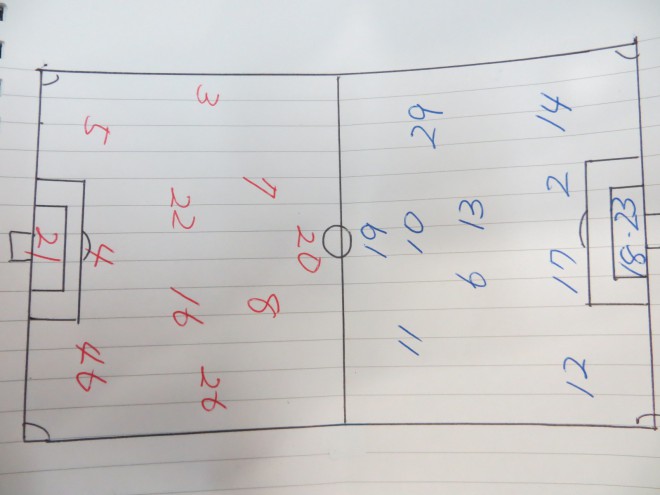 20
7 8
3 22 16 26
5 4 46
21
19
11 10 29
6 13
12 17 2 14
18-23